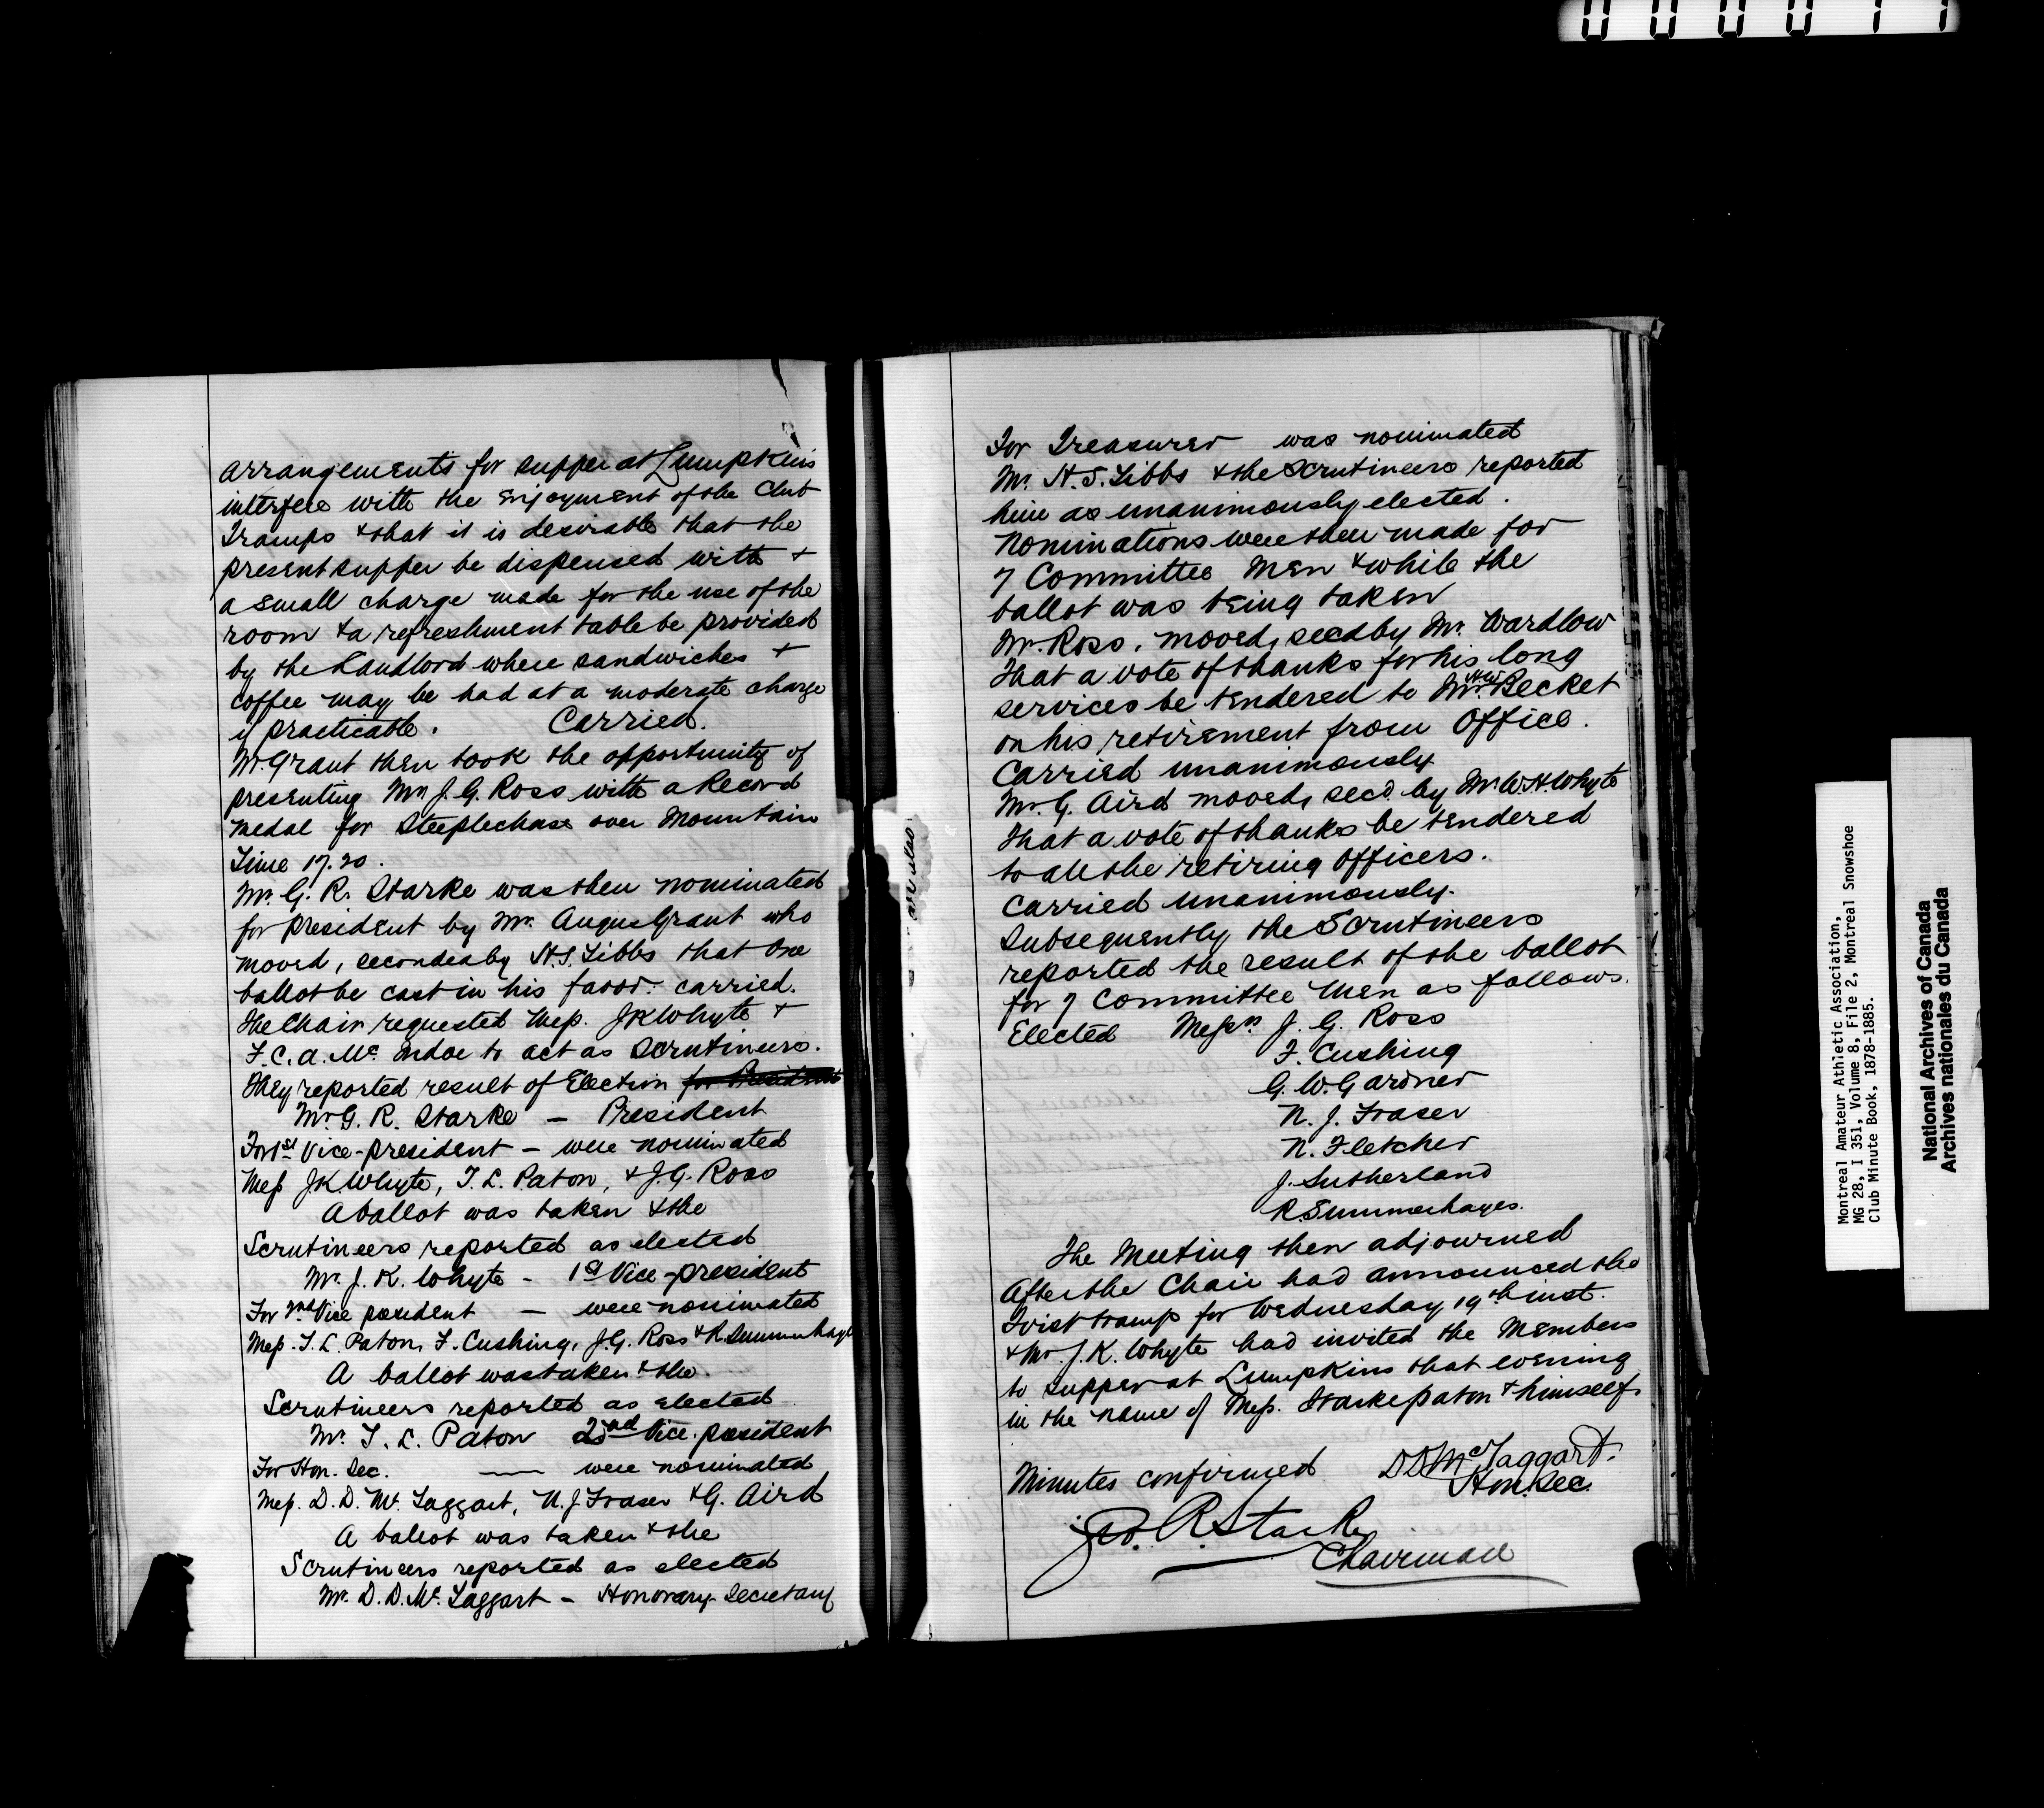 000011
arrangements for supper at Lumpkins
interfere with the enjoyment of the Club
Tramps & that it is desirable that the
present supper be dispensed with &
a small charge made for the use of the
room & a refreshment table be provided
by the Landlord where sandwiches &
coffee may be had at a moderate charge
if practicable. Carried.
Mr. Grant then took the opportunity of
presenting Mr. J. G. Ross with a Record
medal for Steeplechase over Mountain
Time 17.20.
Mr. G. R. Starke was then nominated
for President by Mr. Angus Grant who
moved, seconded by N.S. Tibbs that one
ballot be cast in his favor. carried.
The Chair requested Mess. JK Whyte &
F. C. A. Mc Indoe to act as Scrutineers.
They reported result of Election for President
Mr G. R. Starke – President
For 1st Vice-president – were nominated
Mess J.K. Whyte, T. L. Paton, & J.G. Ross
A ballot was taken & the
Scrutineers reported as elected
Mr. J. K. Whyte – 1st Vice-president
For 2nd Vice president – were nominated
Mess. T. L. Paton, F. Cushing, J.G. Ross & R. Summerhayes
A ballot was taken & the
Scrutineers reported as elected
Mr. T. L. Paton 2nd Vice. president
For Hon. Sec. — were nominated
Mess. D. D. Mc. Taggart, N. J. Fraser & G. Aird
A ballot was taken & the
Scrutineers reported as elected
Mr. D. D. Mc. Taggart – Honorary Secretary
For Treasurer was nominated
Mr. N. S. Tibbs & the Scrutineers reported
him as unanimously elected.
Nominations were then made for
7 Committee Men & while the
ballot was being taken
Mr. Ross, moved, secd by Mr. Wardlow
That a vote of thanks for his long
services be tendered to Mr. Becket
on his retirement from Office.
Carried unanimously
Mr. G. Aird moved, secd. by Mr W. H. Whyte
That a vote of thanks be tendered
to all the retiring Officers.
Carried unanimously.
Subsequently the Scrutineers
reported the result of the ballot
for 7 Committee Men as follows.
Elected Messrs. J. G. Ross
F. Cushing
G. W. Gardner
N. J. Fraser
N. Fletcher
J. Sutherland
R. Summerhayes.
The Meeting then adjourned
After the Chair had announced the
First tramp for Wednesday 19th inst.
& Mr. J. K. Whyte had invited the Members
to supper at Lumpkins that evening
in the name of Mess. Starke Paton & himself
Minutes confirmed DD McTaggart.
Hon. Sec.
Geo. R. Starke
Chairman
Montreal Amateur Athletic Association,
MG 28, I 351, Volume 8, File 2, Montreal Snowshoe
Club Minute Book, 1878-1885.
National Archives of Canada
Archives nationales du Canada